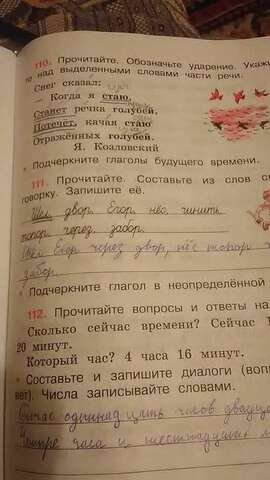 110. Прочитайте. Обозначьте ударение. Укажи
над выделенными словами части речи.
Снег сказал:
– Когда я стаю,
Станет речка голубей,
Потечёт, качая стаю
Отражённых голубей.
Я. Козловский
• Подчеркните глаголы будущего времени.
111. Прочитайте. Составьте из слов
говорку. Запишите её.
Шёл, двор, Егор, нёс, чинить,
топор, через, забор.
Шёл Егор через двор, нёс топор
забор.
• Подчеркните глагол в неопределённой
112. Прочитайте вопросы и ответы на
Сколько сейчас времени? Сейчас 1
20 минут.
Который час? 4 часа 16 минут.
• Составьте и запишите диалоги (воп
вет). Числа записывайте словами.
одиннадцать часов
Четыре часа и шестнадцать